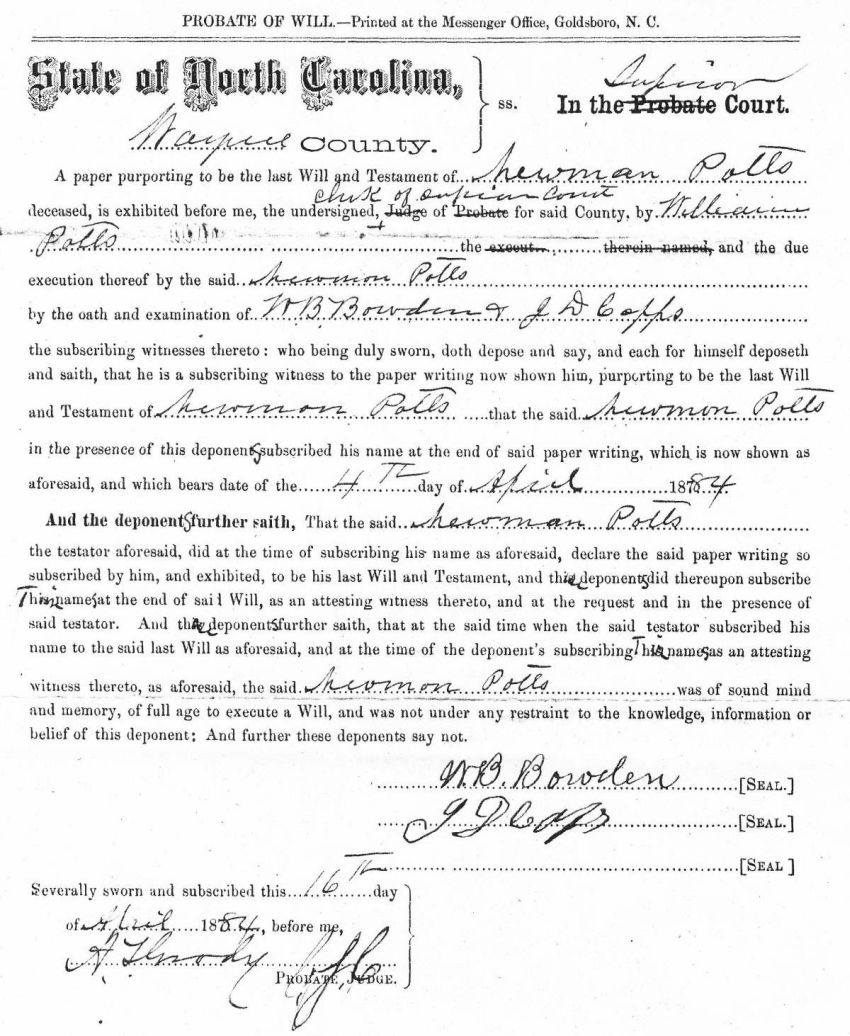 PROBATE OF WILL.—Printed at the Messenger Office, Goldsboro, N. C.
State of North Carolina, } ss. In the Probate Superior Court.
Wayne County.
A paper purporting to be the last Will and Testament of Newman Potts
clerk of Superior Court
deceased, is exhibited before me, the undersigned, Judge of Probate for said County, by William
Potts the execut therein named, and the due
execution thereof by the said Newmon Potts
by the oath and examination of W B Bowden & J D Capps
the subscribing witnesses thereto: who being duly sworn, doth depose and say, and each for himself deposeth
and saith, that he is a subscribing witness to the paper writing now shown him, purporting to be the last Will
and Testament of Newmon Potts that the said Newmon Potts
in the presence of this deponents subscribed his name at the end of said paper writing, which is now shown as
aforesaid, and which bears date of the 4th day of April 1884
And the deponents further saith, That the said Newman Potts
the testator aforesaid, did at the time of subscribing his name as aforesaid, declare the said paper writing so
subscribed by him, and exhibited, to be his last Will and Testament, and the deponents did thereupon subscribe
Their names at the end of said Will, as an attesting witness thereto, and at the request and in the presence of
said testator. And the deponents further saith, that at the said time when the said testator subscribed his
name to the said last Will as aforesaid, and at the time of the deponent's subscribing Their names as an attesting
witness thereto, as aforesaid, the said Newmon Potts was of sound mind
and memory, of full age to execute a Will, and was not under any restraint to the knowledge, information or
belief of this deponent: And further these deponents say not.
W.B. Bowden [SEAL.]
J D Caps [SEAL.]
[SEAL ]
Severally sworn and subscribed this 16th day
of April 1884, before me,
PROBATE JUDGE.